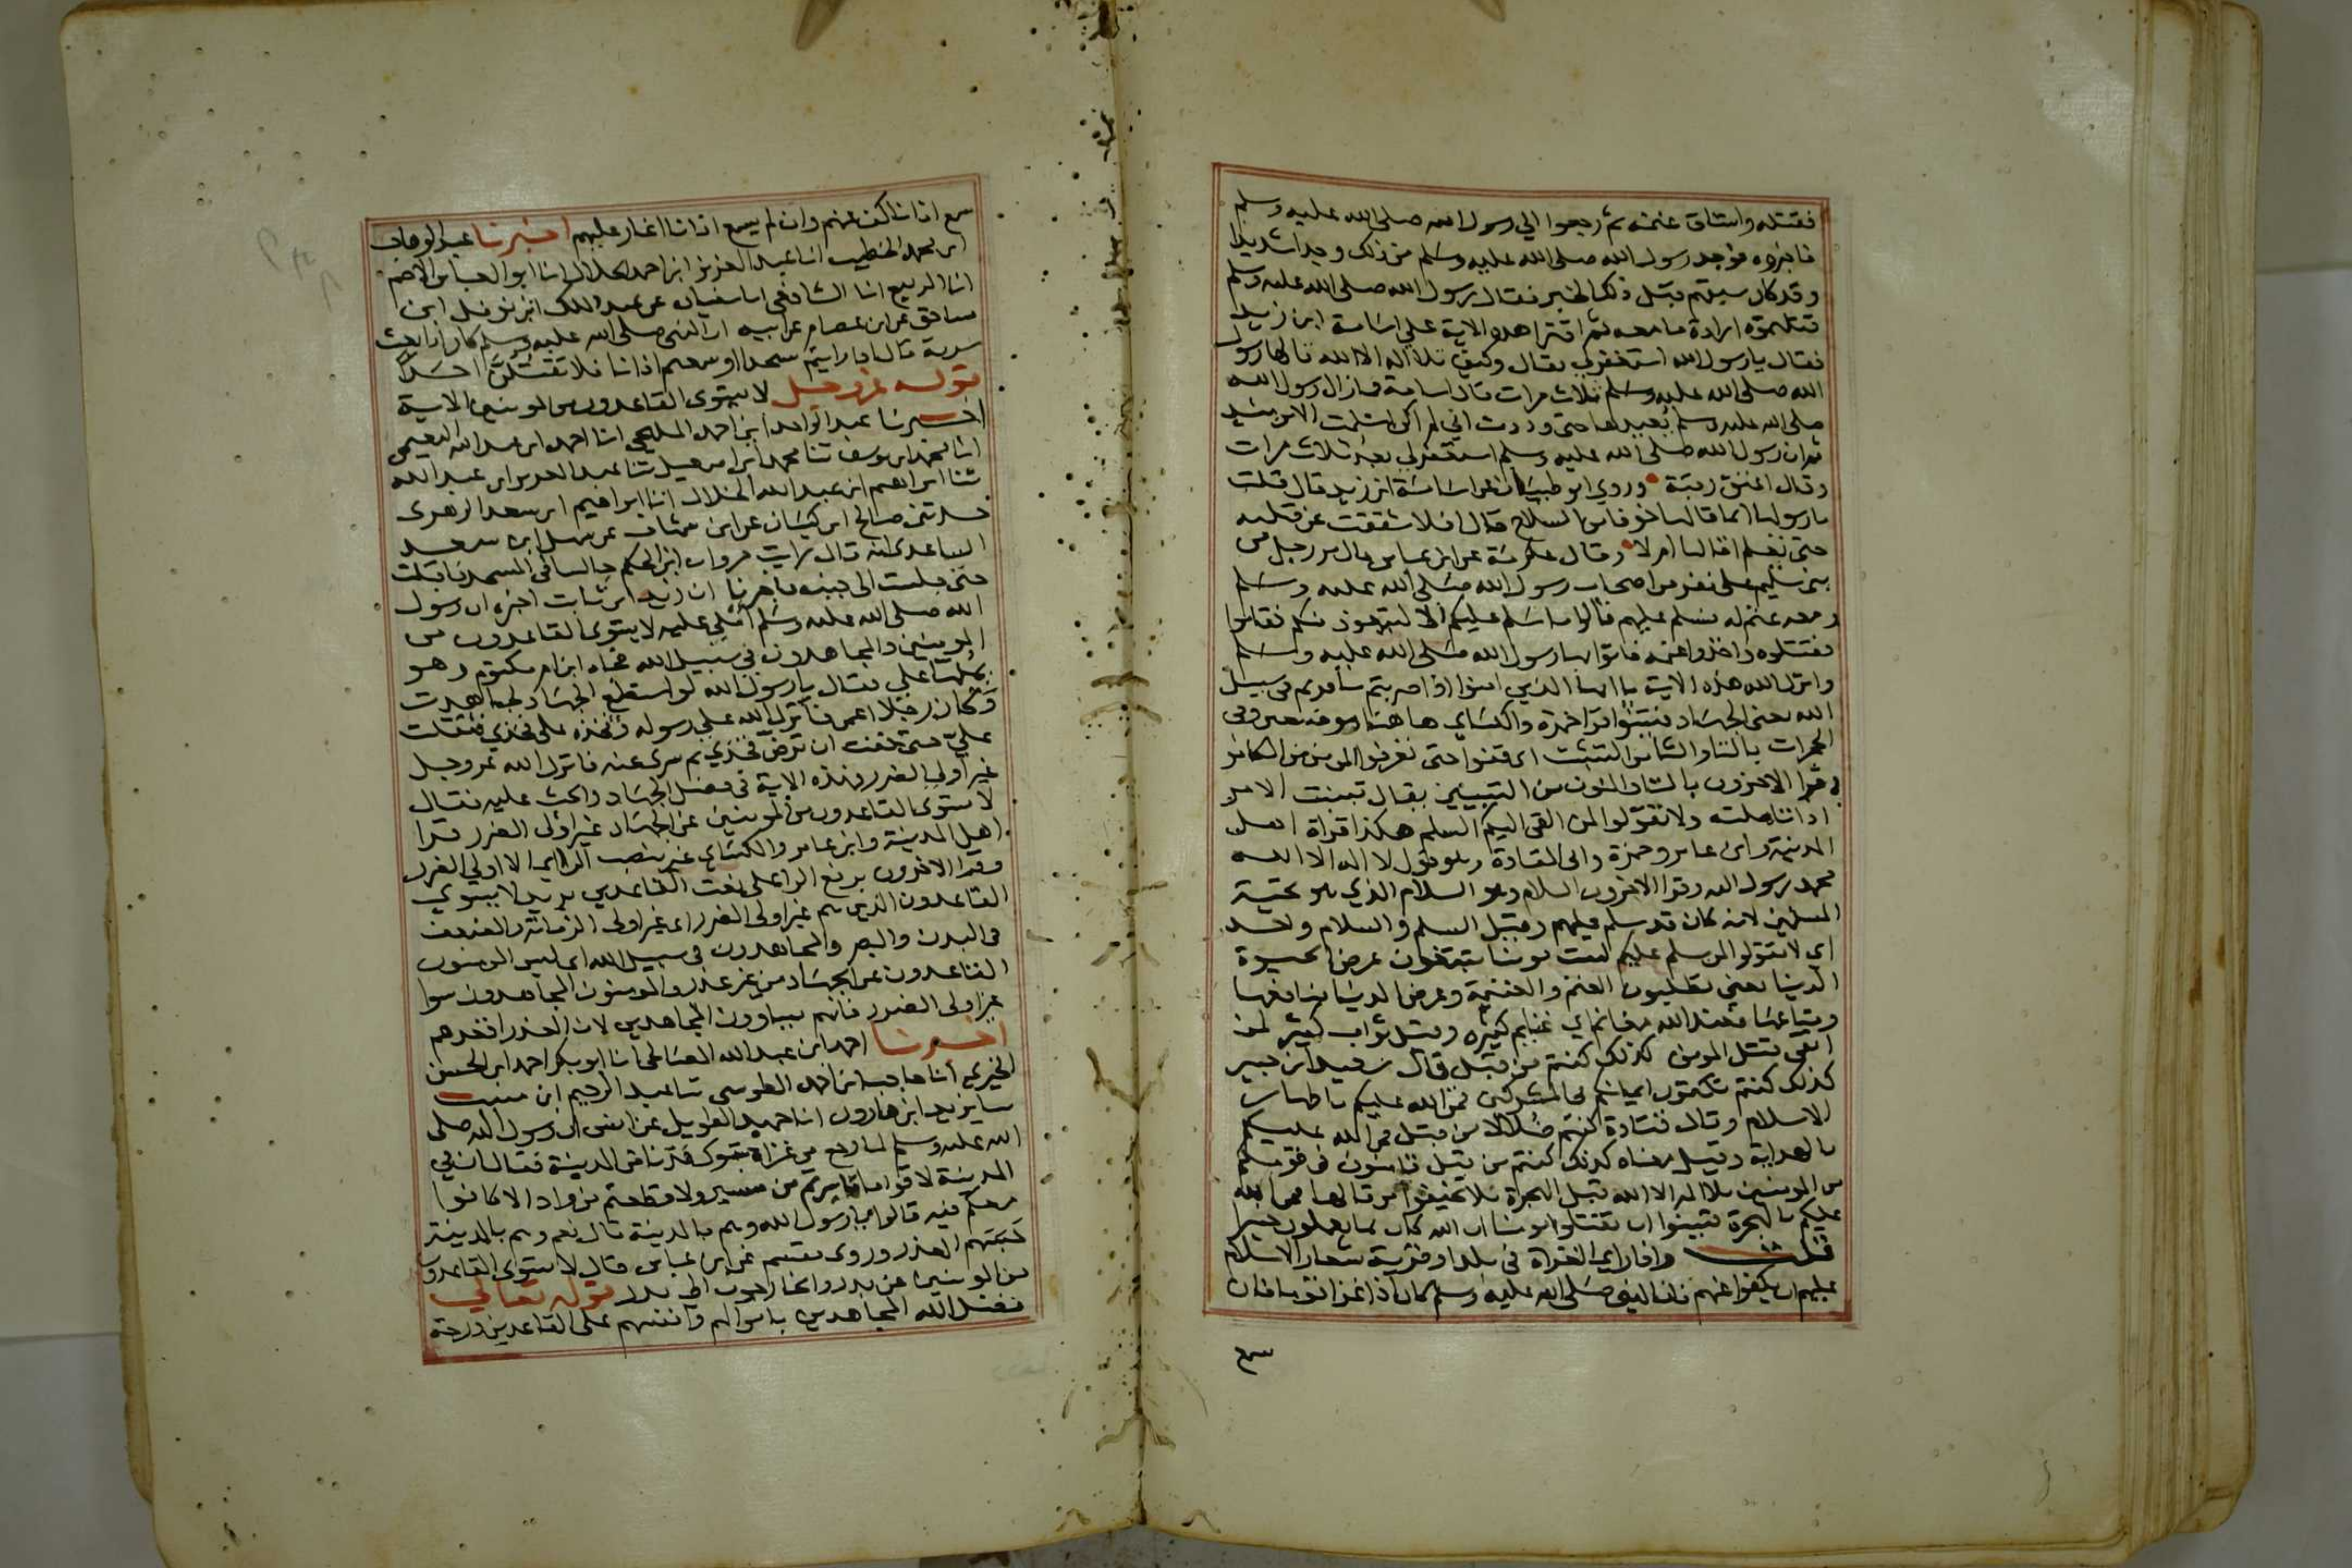 فقتله واستاق غنمه ثم رجعوا الي رسول الله صلى الله عليه وسلم
فاخبروه فوجد رسول الله صلى الله عليه وسلم من ذلك وجدا شديدا
وقد كان سبقهم قبل ذلك الخبر فقال رسول الله صلى الله عليه وسلم
قتلتموه ارادة ما معه ثم اقترا هذه الاية علي اسامة ابن زيد
فقال يا رسول الله استغفر لي فقال وكيف بلا اله الا الله قالها رسول
الله صلى الله عليه وسلم ثلاث مرات قال اسامة فما زال رسول الله
صلى الله عليه وسلم يعيدها حتى وددت اني لم اكن اسلمت الا يومئذ
ثم ان رسول الله صلى الله عليه وسلم استغفر لي بعد ثلاث مرات
وقال اعتق رقبة وروي ابو ظبيان عن اسامة ابن زيد قال قلت
يا رسول الله انما قالها خوفا من السلاح قال افلا شققت عن قلبه
حتى تعلم اقالها ام لا وقال عكرمة عن ابن عباس قال مر رجل من
بني سليم على نفر من اصحاب رسول الله صلى الله عليه وسلم
ومعه غنم له فسلم عليهم قالوا ما سلم عليكم الا ليتعوذ منكم فقاموا
فقتلوه واخذوا غنمه فاتوا بها رسول الله صلى الله عليه وسلم
وانزل الله هذه الاية يا ايها الذين امنوا اذا ضربتم سافرتم في سبيل
الله يعني الجهاد فتبينوا قرا حمزة والكساي هاهنا موضعين وفي
الحجرات بالتا والثا من التثبت اى قفوا حتى تعرفوا المومن من الكافر
وقرا الاخرون باليا والنون من التبيين يقال تبينت الامر
اذا تاملته ولا تقولوا لمن القى اليكم السلم هكذا قراة اهل
المدينة وابن عامر وحمزة والى القادة وهو قول لا اله الا الله
محمد رسول الله وقرا الاخرون السلام وهو السلام الذي هو تحية
المسلمين لانه كان قد سلم عليهم وقيل السلم والسلام واحد
اي لا تقولوا لمن سلم عليكم لست مومنا تبتغون عرض الحيوة
الدنيا يعني تطلبون الغنم والغنيمة وعرض الدنيا منافعها
ومتاعها فعند الله مغانم اي غنايم كثيرة وقيل ثواب كثير لمن
اتقى قتل المومن كذلك كنتم من قبل قال سعيد ابن جبير
كذلك كنتم تكتمون ايمانكم من المشركين فمن الله عليكم باظهار
الاسلام وقال قتادة كنتم ضلالا من قبل فمن الله عليكم
بالهداية وقيل معناه كذلك كنتم من قبل تامنون في قومكم
من المومنين بلا اله الا الله قبل الهجرة فلا تخيفوا من قالها فمن الله
عليكم بالهجرة فتبينوا ان تقتلوا مومنا ان الله كان بما تعملون خبيرا
قلت واذا راي الغزاة في بلد او قرية شعار الاسلام
عليهم ان يكفوا عنهم فان النبي صلى الله عليه وسلم كان اذا غزا قوما فان
سمع
سمع اذانا كف عنهم وان لم يسمع اذانا اغار عليهم اخبرنا عبد الوهاب
ابن محمد الخطيب انا عبد العزيز ابن احمد الخلال انا ابو العباس الاصم
انا الربيع انا الشافعي انا سفيان عن عبد الملك ابن نوفل ابن
مساحق عن ابن عصام عن ابيه ان النبي صلى الله عليه وسلم كان اذا بعث
سرية قال اذا رايتم مسجدا او سمعتم اذانا فلا تقتلن احدا
قوله عز وجل لا يستوى القاعدون من المومنين الاية
اخبرنا عبد الواحد ابن احمد المليحي انا احمد ابن عبد الله النعيمي
انا محمد ابن يوسف ثنا محمد ابن اسمعيل ثنا عبد العزيز ابن عبد الله
ثنا ابراهيم ابن عبد الله الخلال انا ابراهيم ابن سعد الزهرى
حدثني صالح ابن كيسان عن ابن شهاب عن سهل ابن سعد
الساعدى انه قال رايت مروان ابن الحكم جالسا في المسجد فاقبلت
حتى جلست الى جنبه فاخبرنا ان زيد ابن ثابت اخبره ان رسول
الله صلى الله عليه وسلم املى عليه لا يستوى القاعدون من
المومنين والمجاهدون في سبيل الله فجاه ابن ام مكتوم وهو
يملها علي فقال يا رسول الله لو استطيع الجهاد لجاهدت
وكان رجلا اعمى فانزل الله علي رسوله وفخذه على فخذي فثقلت
علي حتى خفت ان ترض فخذي ثم سرى عنه فانزل الله عز وجل
غير اولي الضرر فهذه الاية في فضل الجهاد والحث عليه فقال
لا يستوى القاعدون من المومنين عن الجهاد غير اولى الضرر قرا
اهل المدينة وابن عامر والكساي غير بنصب الراء اي الا اولي الضرر
وقرا الاخرون برفع الرا على نعت القاعدين يريد لا يستوي
القاعدون الذين هم غير اولى الضرر اى غير اولى الزمانة والضعف
في البدن والبصر والمجاهدون في سبيل الله اى ليس المومنون
القاعدون عن الجهاد من غير عذر والمومنون المجاهدون سوا
غير اولى الضرر فانهم يساوون المجاهدين لان العذر اقعدهم
اخبرنا احمد ابن عبد الله الصالحى انا ابو بكر احمد ابن الحسن
الحيري انا حاجب ابن احمد الطوسي ثنا عبد الرحيم ابن منيب
ثنا يزيد ابن هارون انا حميد الطويل عن انس ان رسول الله صلى
الله عليه وسلم لما رجع من غزاة تبوك فدنا من المدينة فقال ان في
المدينة لاقواما ما سرتم من مسير ولا قطعتم من واد الا كانوا
معكم فيه قالوا يا رسول الله وهم بالمدينة قال نعم وهم بالمدينة
حبسهم العذر وروى مقسم عن ابن عباس قال لا يستوى القاعدون
من المومنين عن بدر والخارجون الى بدر قوله تعالي
فضل الله المجاهدين باموالهم وانفسهم على القاعدين درجة